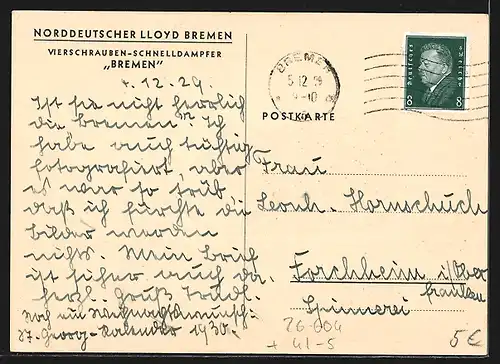 NORDDEUTSCHER LLOYD BREMEN
VIERSCHRAUBEN-SCHNELLDAMPFER
„BREMEN"
4.12.29.
Ist sie nicht herrlich
die Bremen? Ich
habe auch tüchtig
fotografiert, aber
es war so trüb
daß ich fürchte die
Bilder werden
nichts. Mein Brief
ist sicher auch da.
Herzl. Gruß Trudl.
Noch ein Weihnachtswunsch:
Georg-Kalender 1930.
BREMEN
5.12.29
9-10
POSTKARTE
Deutsches Reich
8 8
Frau
Leonh. Hornschuch
Forchheim i/Ober
franken
Spinnerei
26-604
+ 41-5
5€